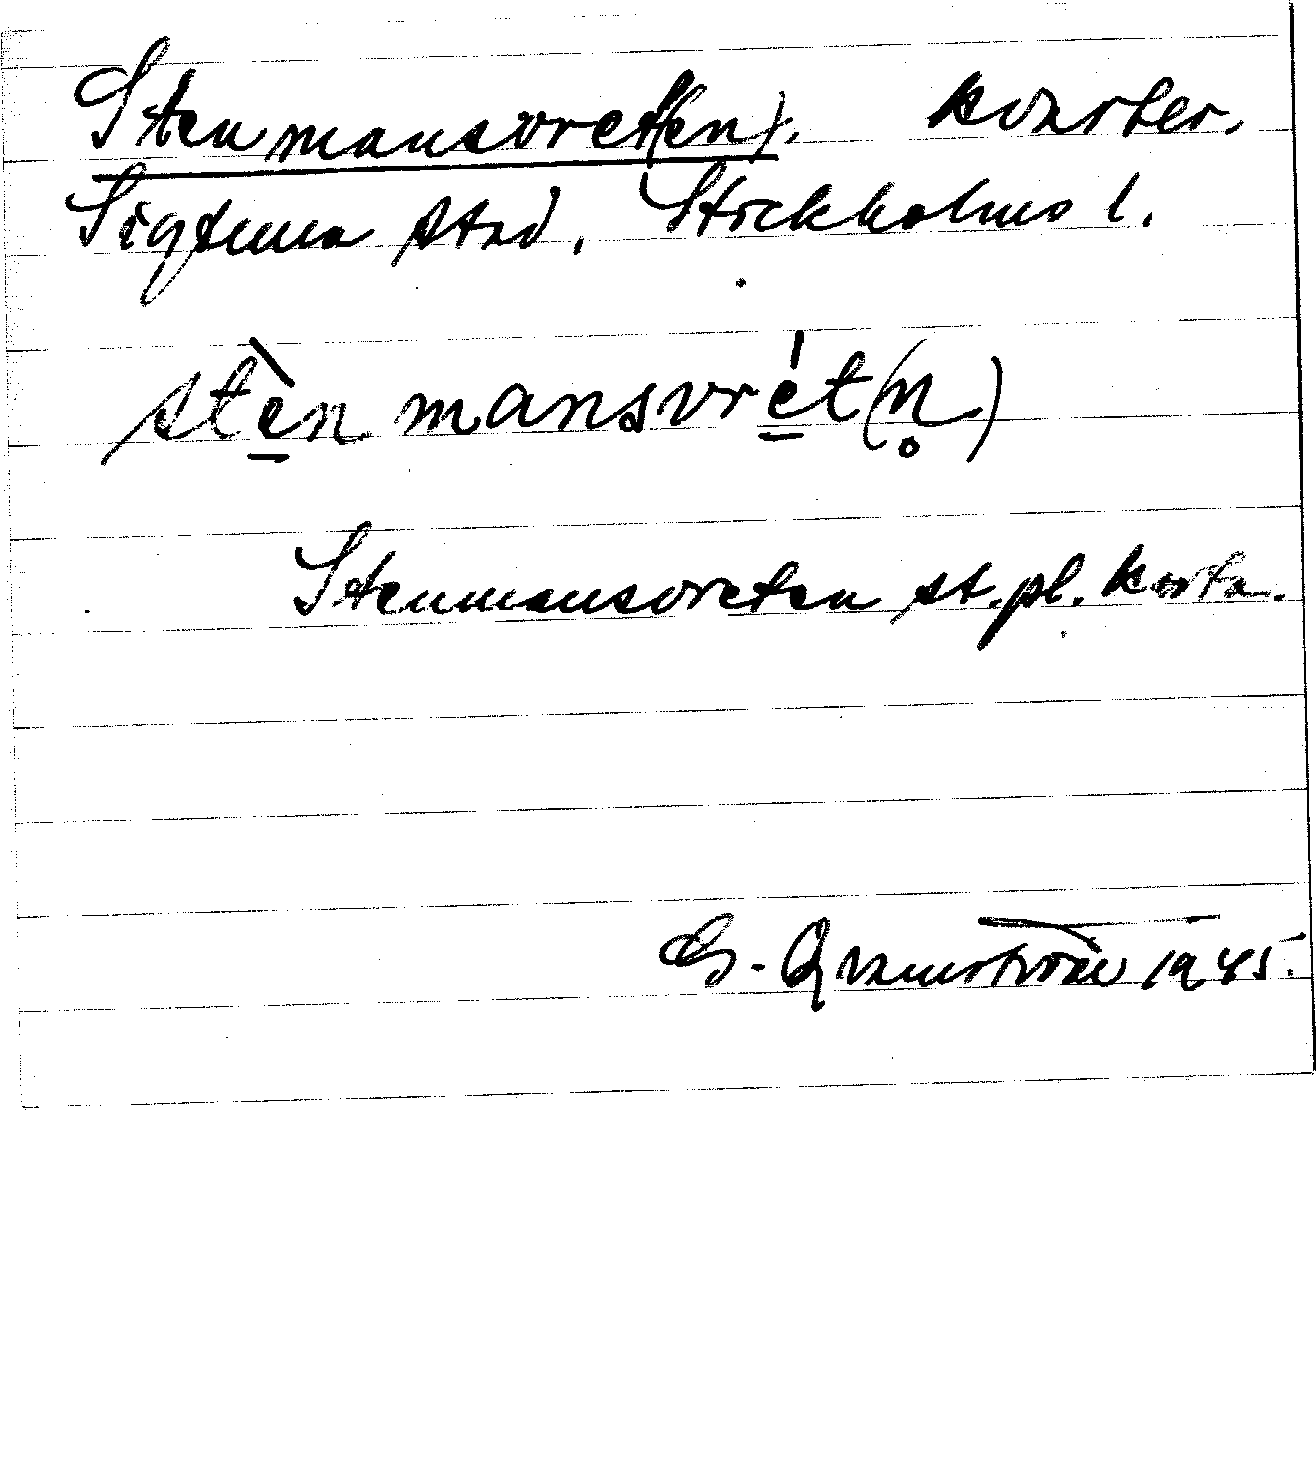 Stenmansvret(en), kvarter.
Sigtuna stad, Stockholms l.
stè̲nmansvré̲t(n̥)
Stenmansvreten st.pl. karta.
G. Qvarnström 1945.